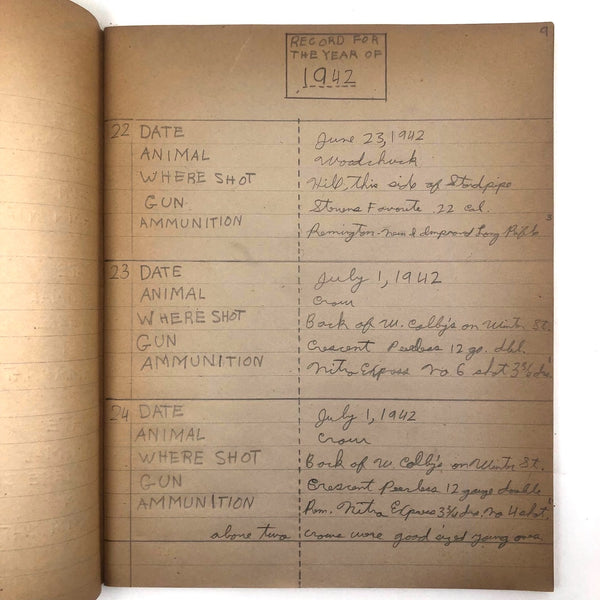 9
RECORD FOR
THE YEAR OF
1942
22 DATE June 23, 1942
ANIMAL Woodchuck
WHERE SHOT Hill, this side of Standpipe
GUN Stevens Favorite .22 Cal.
AMMUNITION Remington - New & Improved Long Rifle
23 DATE July 1, 1942
ANIMAL Crow
WHERE SHOT Back of W. Colby's on Winter St.
GUN Crescent Peerless 12 ga. dbl.
AMMUNITION Nitro Express No. 6 shot 3 3/4 drs.
24 DATE July 1, 1942
ANIMAL Crow
WHERE SHOT Back of W. Colby's on Winter St.
GUN Crescent Peerless 12 gauge double
AMMUNITION Rem. Nitro Express 3 3/4 drs. No 4 shot.
above two crows were good sized young ones